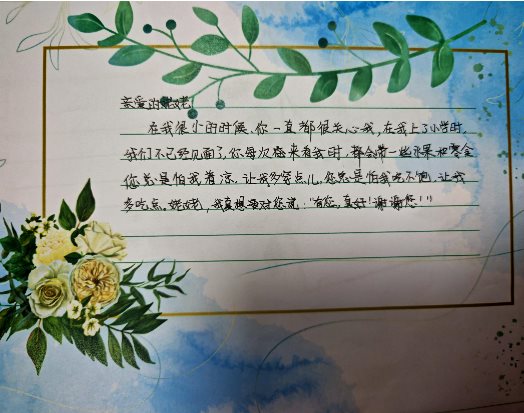 亲爱的姥姥!
在我很小的时候,你一直都很关心我,在我上了小学时,
我们不已经见面了,你每次每来看我时,都会带一些水果和零食
您总是怕我着凉,让我多穿点儿,您总是怕我吃不饱,让我
多吃点。姥姥,我真想要对您说:“有您,真好!谢谢您!”